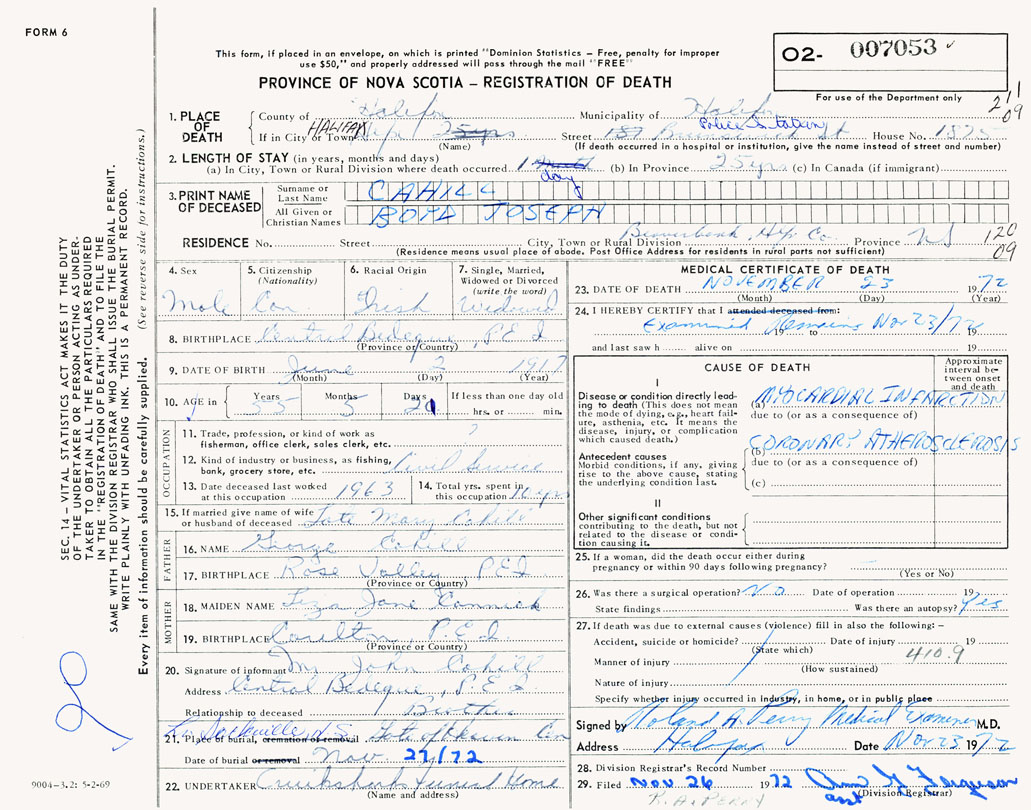 FORM 6
This form, if placed in an envelope, on which is printed "Dominion Statistics – Free, penalty for improper
use $50," and properly addressed will pass through the mail "FREE"
PROVINCE OF NOVA SCOTIA – REGISTRATION OF DEATH
O2- 007053
For use of the Department only
211
09
1. PLACE OF DEATH
County of Halifax Municipality of Halifax
If in City or Town HALIFAX (Name) Street Police Station House No. 1875
(If death occurred in a hospital or institution, give the name instead of street and number)
2. LENGTH OF STAY (in years, months and days)
(a) In City, Town or Rural Division where death occurred 1 day (b) In Province 25 yrs (c) In Canada (if immigrant)
3. PRINT NAME OF DECEASED
Surname or Last Name CAHILL
All Given or Christian Names BOYD JOSEPH
RESIDENCE No. Street City, Town or Rural Division Beaverbank Hfx Co. Province NS
120
09
(Residence means usual place of abode. Post Office Address for residents in rural parts not sufficient)
4. Sex Male
5. Citizenship (Nationality) Can
6. Racial Origin Irish
7. Single, Married, Widowed or Divorced (write the word) Widowed
8. BIRTHPLACE Central Bedeque, P.E.I (Province or Country)
9. DATE OF BIRTH June 3 1917
(Month) (Day) (Year)
10. AGE in Years 55 Months 5 Days 20 If less than one day old hrs. or min.
OCCUPATION
11. Trade, profession, or kind of work as fisherman, office clerk, sales clerk, etc. ?
12. Kind of industry or business, as fishing, bank, grocery store, etc. Civil Service
13. Date deceased last worked at this occupation 1963
14. Total yrs. spent in this occupation yrs
15. If married give name of wife or husband of deceased Late Mary Cahill
FATHER
16. NAME George Cahill
17. BIRTHPLACE Rose Valley P.E.I
(Province or Country)
MOTHER
18. MAIDEN NAME Liza Jane
19. BIRTHPLACE P.E.I.
(Province or Country)
20. Signature of informant Mr John Cahill
Address Central Bedeque, P.E.I.
Relationship to deceased Brother
21. Place of burial, cremation or removal Lr Sackville, N.S. Gate of Heaven Cem
Date of burial or removal Nov. 27/72
22. UNDERTAKER Cruikshank Funeral Home
(Name and address)
MEDICAL CERTIFICATE OF DEATH
23. DATE OF DEATH NOVEMBER 23 1972
(Month) (Day) (Year)
24. I HEREBY CERTIFY that I attended deceased from:
Examined Remains Nov 23/72
19 to 19
and last saw h alive on 19
CAUSE OF DEATH
Approximate interval between onset and death
I
Disease or condition directly leading to death (This does not mean the mode of dying, e.g., heart failure, asthenia, etc. It means the disease, injury, or complication which caused death.)
(a) MYOCARDIAL INFARCTION
due to (or as a consequence of)
Antecedent causes
Morbid conditions, if any, giving rise to the above cause, stating the underlying condition last.
(b) CORONARY ATHEROSCLEROSIS
due to (or as a consequence of)
(c)
II
Other significant conditions
contributing to the death, but not related to the disease or condition causing it.
25. If a woman, did the death occur either during
pregnancy or within 90 days following pregnancy?
(Yes or No)
26. Was there a surgical operation? No Date of operation 19
State findings Was there an autopsy? Yes
27. If death was due to external causes (violence) fill in also the following: –
Accident, suicide or homicide? Date of injury 19
(State which)
410.9
Manner of injury
(How sustained)
Nature of injury
Specify whether injury occurred in industry, in home, or in public place
Signed by Roland A. Perry Medical Examiner M.D.
Address Halifax Date Nov 23 1972
28. Division Registrar's Record Number
29. Filed Nov 26 1972 Ferguson
asst (Division Registrar)
R. A. PERRY
SEC. 14 – VITAL STATISTICS ACT MAKES IT THE DUTY
OF THE UNDERTAKER OR PERSON ACTING AS UNDER-
TAKER TO OBTAIN ALL THE PARTICULARS REQUIRED
IN THE "REGISTRATION OF DEATH" AND TO FILE THE
SAME WITH THE DIVISION REGISTRAR WHO SHALL ISSUE THE BURIAL PERMIT.
WRITE PLAINLY WITH UNFADING INK. THIS IS A PERMANENT RECORD.
Every item of information should be carefully supplied. (See reverse side for instructions.)
9004-3.2: 5-2-69